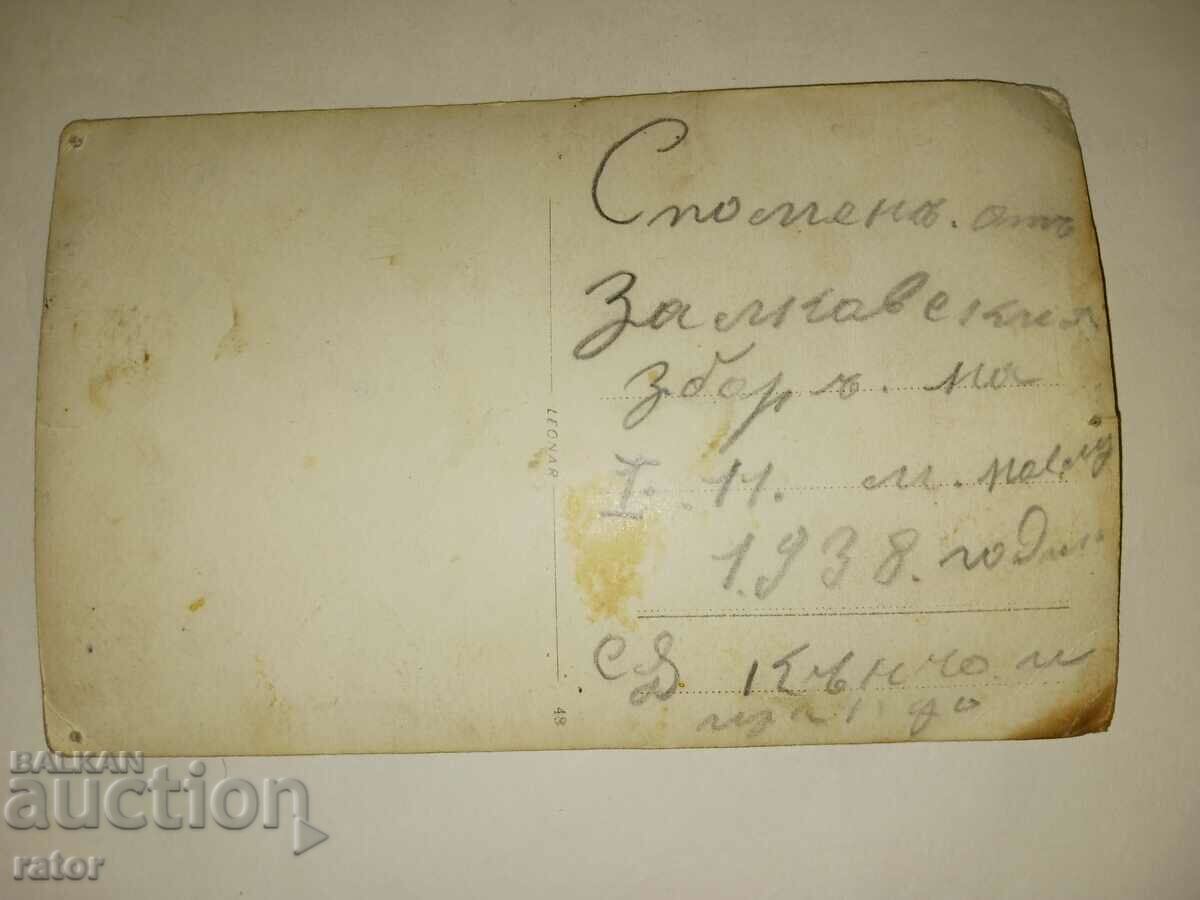 Споменъ. отъ
Залкавския
зборъ. на
I. 11. м.
1.938. годин
СЪ Кънчо. и
LEONAR
43
BALKAN
auction
rator